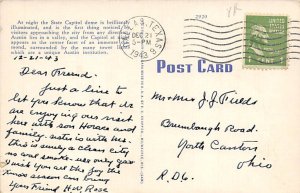 At night the State Capitol dome is brilliantly
illuminated, and is the first thing noticed by
visitors approaching the city from any direction.
Austin lies the Capitol of it
appears in the center facet of an immense
surrounded by the many tower lights
which are a unique Austin institution.
12-21-43
Dear Friend.
Just a line to
let you know that we
are enjoying our visit
here with son Horace and
family. sister is with me.
this is surely a clean city
no coal smoke. use only gas
I wish you all the Joy the
Xmas Season can bring
your Friend H.W. Rose
AUSTIN, TEXAS
DEC 21
5-PM
1943
2920
POST CARD
UNITED STATES
1 CENT
Mr & Mrs J. J. Fields
Brumbaugh Road.
North Canton
Ohio
R.D. 6.